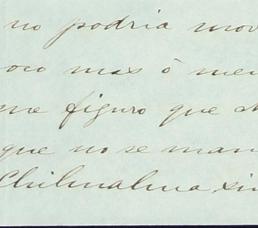 no podria mov
oco mas ò men
me figuro que
que no se man
Chihuahua sin